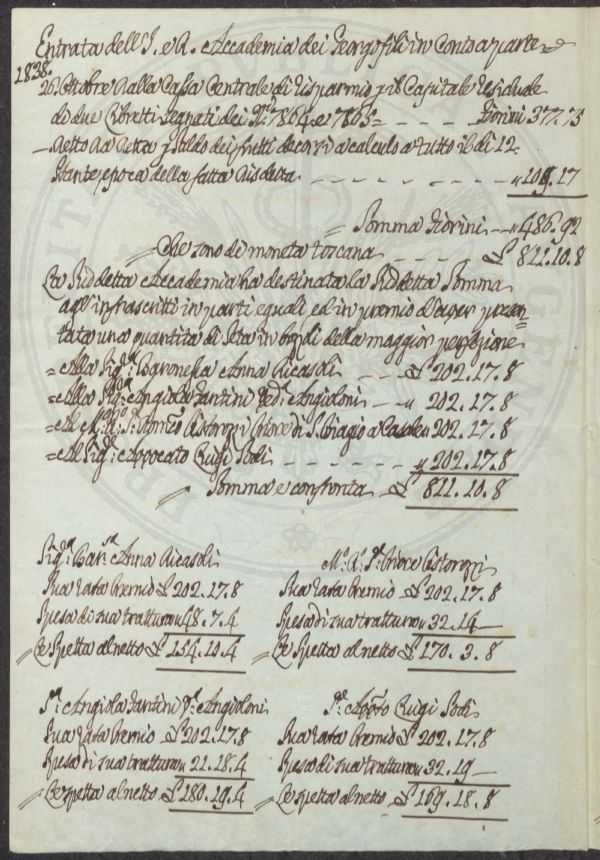 Entrata dell'I. e R. Accademia dei Georgofili in Contraparte
1838.
26. Ottobre dalla Cassa Centrale di Risparmio p il Capitale residuale
di due Libretti segnati dei Ni. 7864. e 7865= - - - - Fiorini 377.75
detto da detta p saldo dei frutti decorsi a calcolo a tutto il dì 12
stante, epoca della fatta disdetta - - - - - - " 109.17
Somma Fiorini - - " 486.92
Che sono di moneta toscana - - - - - £ 811.10.8
La suddetta Accademia ha destinata la suddetta Somma
agl'infrascritti in parti eguali ed in premio d'aver presen=
tata una quantita di seta in bozzoli della maggior perfezione
= Alla Sig.ra Baronessa Anna Ricasoli - - - £ 202.17.8
= Alla Sig.ra Angiola Fantini Ved.a Angioloni - - " 202.17.8
= Al M.o R.o S.r Priore di S. Biagio a " 202.17.8
= Al Sig.r Avvocato Luigi - - - - - - " 202.17.8
Somma e confronta £ 811.10.8
Sig.ra Bar.sa Anna Ricasoli
Sua rata Premio £ 202.17.8
Spesa di sua trattura " 48.7.4
Le spetta al netto £ 154.10.4
M.o R.o S.r Priore
Sua rata Premio £ 202.17.8
Spesa di sua trattura " 32.14 —
Le spetta al netto £ 170.3.8
S.ra Angiola Fantini V.a Angioloni
Sua rata Premio £ 202.17.8
Spesa di sua trattura " 21.18.4
Le spetta al netto £ 180.19.4
S.r Avv.to Luigi
Sua rata Premio £ 202.17.8
Spesa di sua trattura " 32.19 —
Le spetta al netto £ 169.18.8